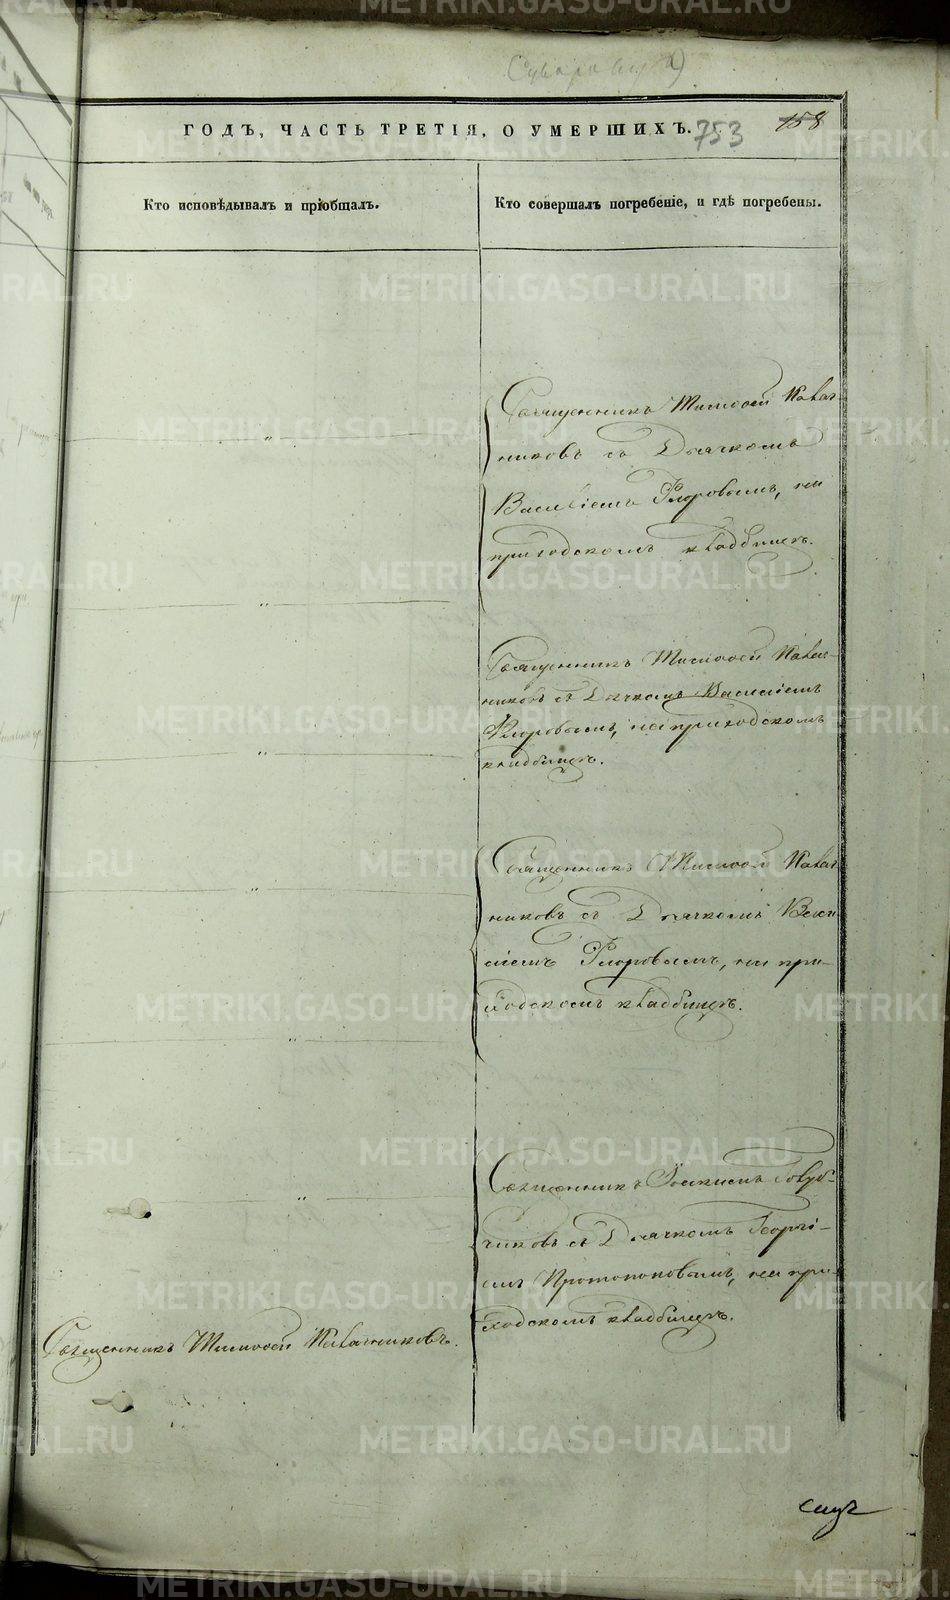 ГОДЪ, ЧАСТЬ ТРЕТІЯ, О УМЕРШИХЪ.
753
158
Кто исповѣдывалъ и пріобщалъ.
Кто совершалъ погребеніе, и гдѣ погребены.
Священникъ Тимофей
никовъ съ Дьячкомъ
Василіемъ Флоровымъ, на
приходскомъ кладбищѣ.
Священникъ Тимофей
никовъ съ Дьячкомъ Василіемъ
Флоровымъ, на приходскомъ
кладбищѣ.
Священникъ Тимофей
никовъ съ Дьячкомъ Васи
ліемъ Флоровымъ, на при-
ходскомъ кладбищѣ.
Священникъ Іоакимъ
чиковъ съ Дьячкомъ Георгі-
емъ Протопоповымъ, на при-
ходскомъ кладбищѣ.
Священникъ Тимофей
METRIKI.GASO-URAL.RU